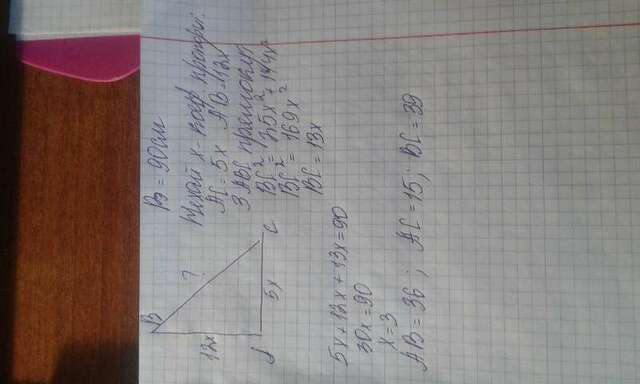 P = 90 см
Нехай x - коеф. пропорц.
AC = 5x AB = 12x
З ABC прямокутн.
BC² = 25x² + 144x²
BC² = 169x²
BC = 13x
B
?
12x
A
5x
C
5x + 12x + 13x = 90
30x = 90
x = 3
AB = 36; AC = 15; BC = 39